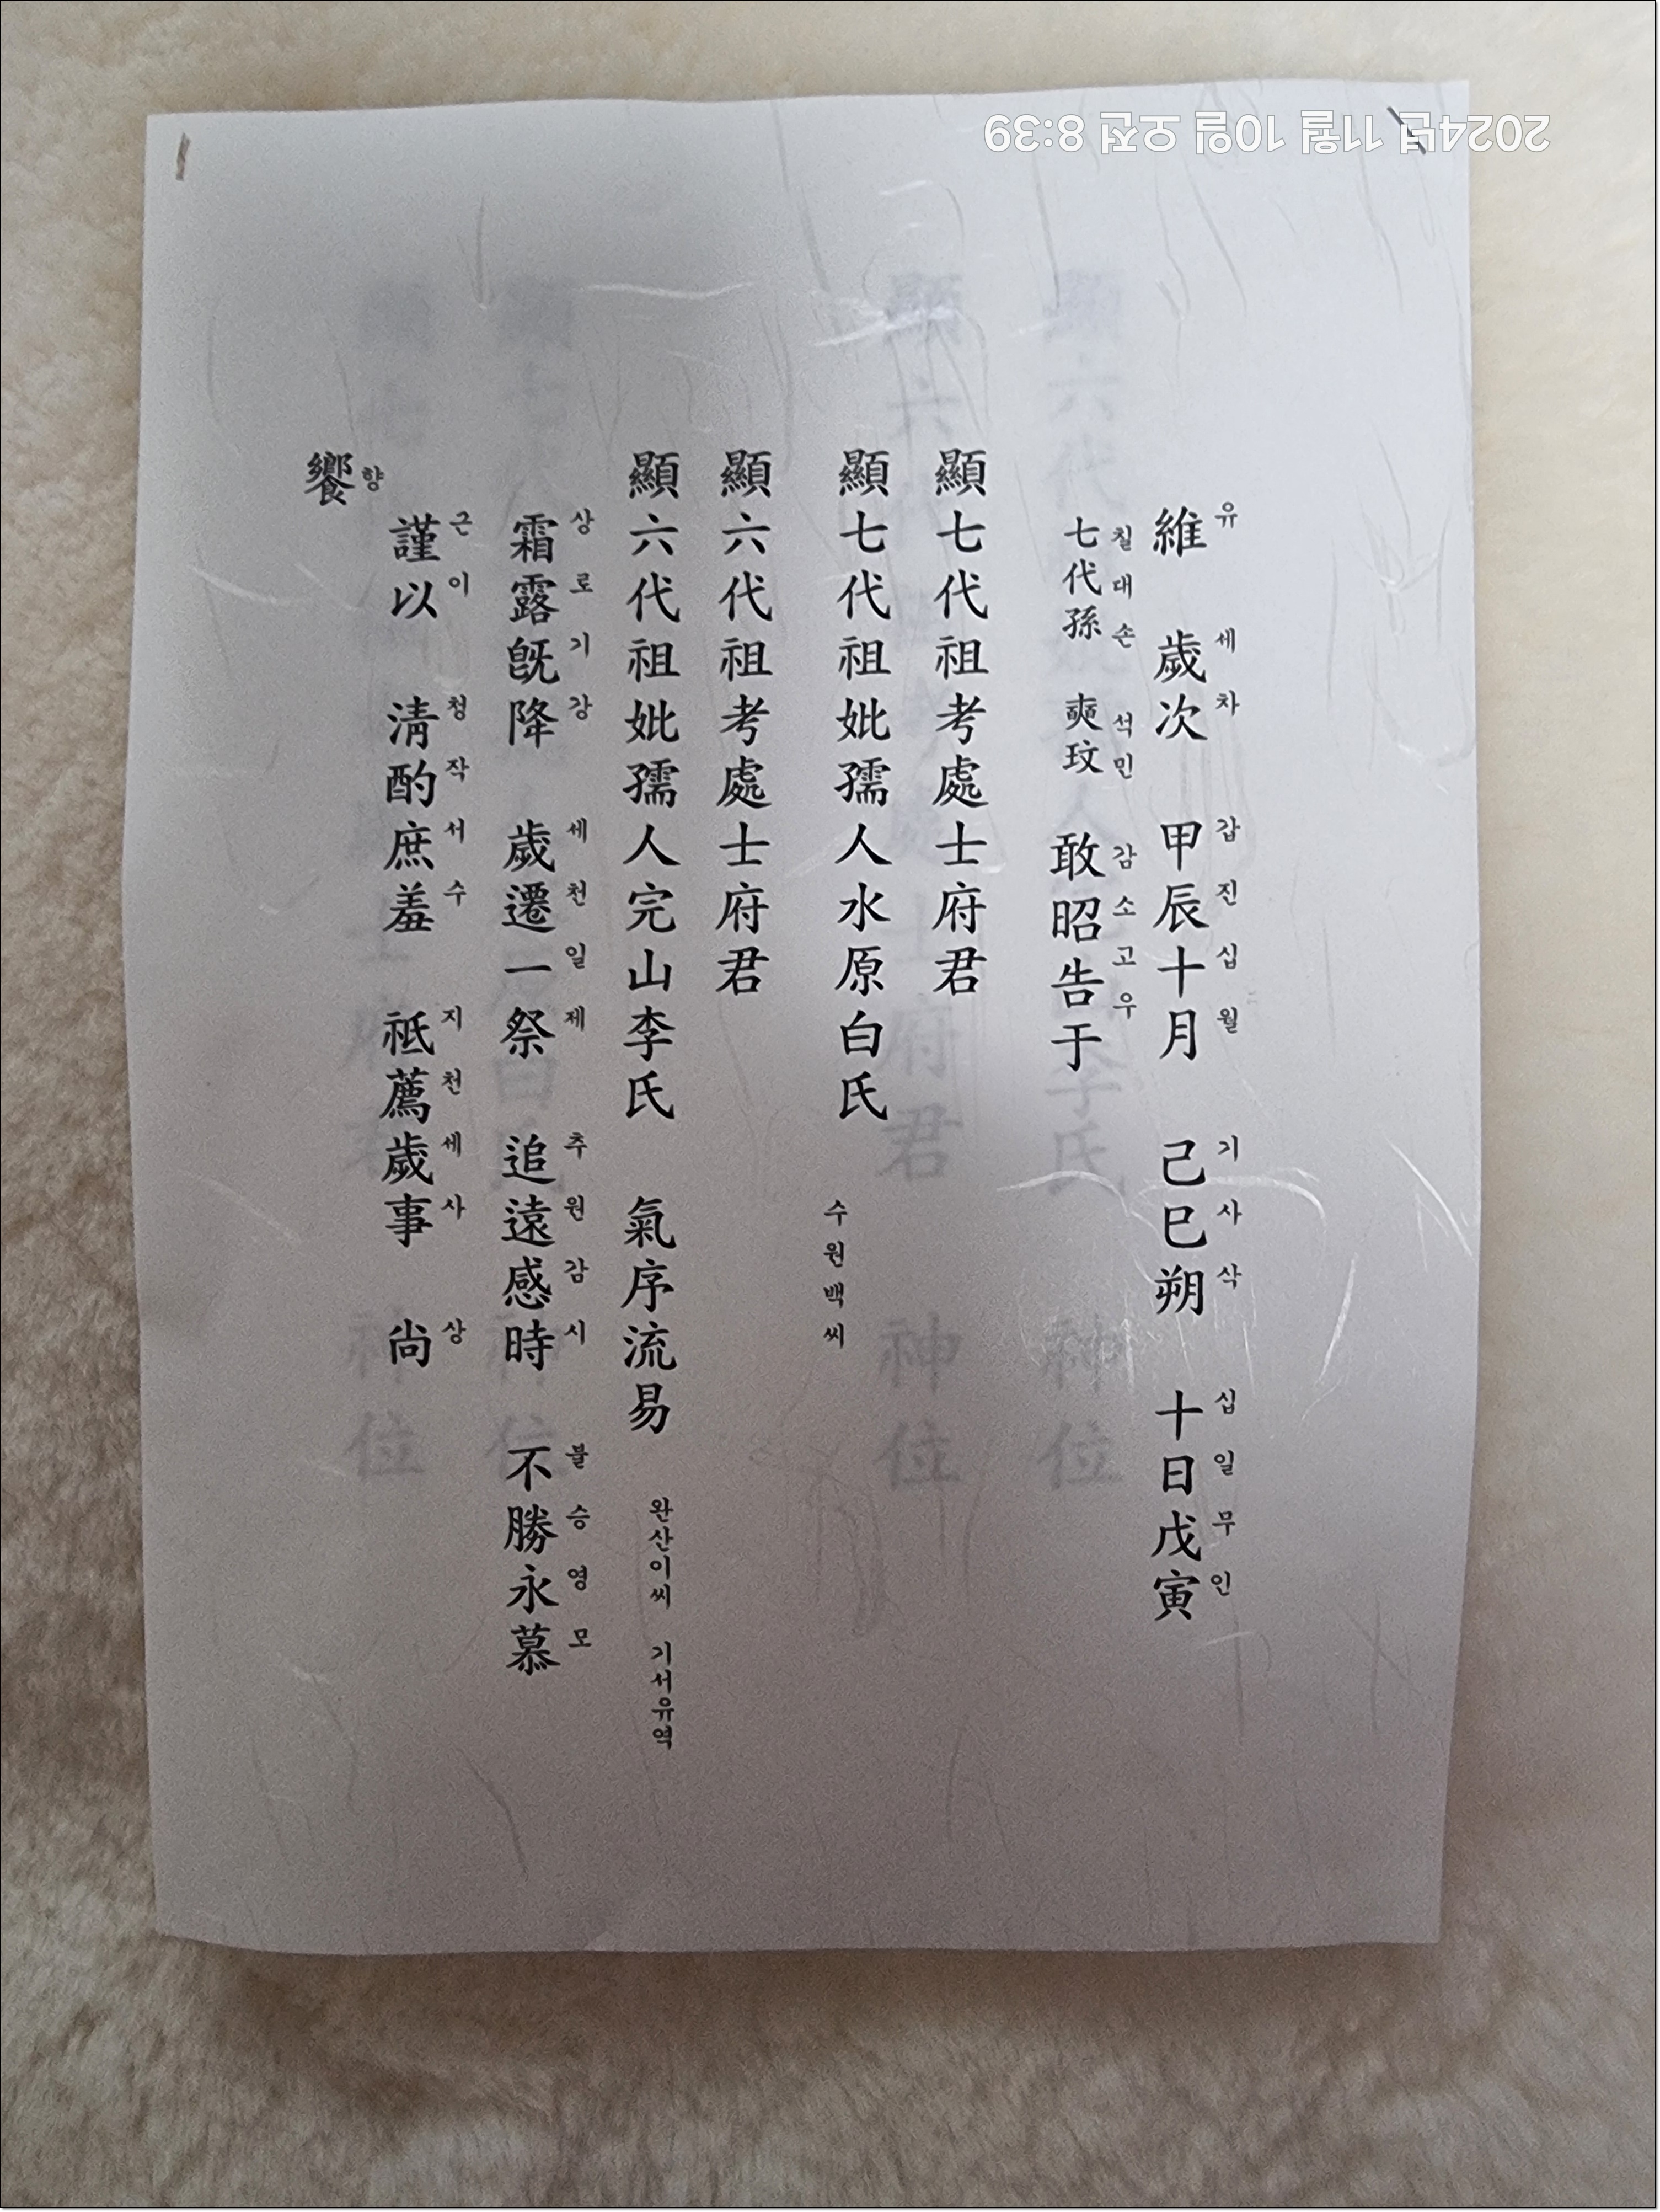 2024년 11월 10일 오전 8:39
維 歲次 甲辰十月 己巳朔 十日戊寅
유 세차 갑진십월 기사삭 십일무인
七代孫 奭玟 敢昭告于
칠대손 석민 감소고우
顯七代祖考處士府君
顯七代祖妣孺人水原白氏
수원백씨
顯六代祖考處士府君
顯六代祖妣孺人完山李氏 氣序流易
완산이씨 기서유역
霜露旣降 歲遷一祭 追遠感時 不勝永慕
상로기강 세천일제 추원감시 불승영모
謹以 淸酌庶羞 祗薦歲事 尙
근이 청작서수 지천세사 상
饗
향